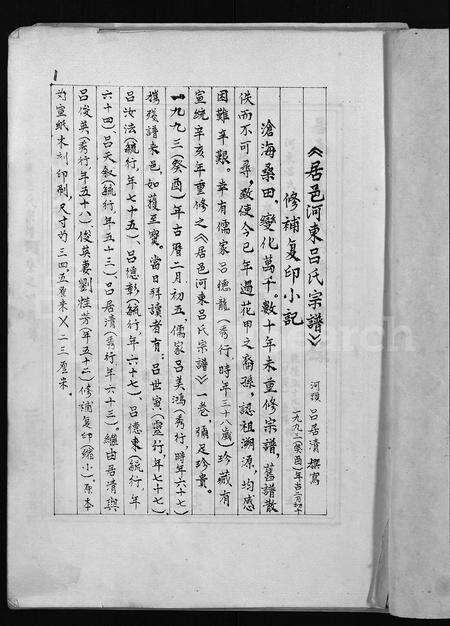 《居邑河東吕氏宗譜》
修補复印小記
河頭 吕居清 撰寫
一九九三(癸酉)年古二月初十
滄海桑田,變化萬千。数十年未重修宗譜,舊譜散
佚而不可尋,致使今已年過花甲之裔孫,認祖溯源,均感
困難辛艱。幸有儒家吕德龍(秀行,時年三十八歲)珍藏有
宣統辛亥年重修之《居邑河東吕氏宗譜》一卷,彌足珍貴。
一九九三(癸酉)年古曆二月初五,儒家吕美鴻(秀行,時年六十七)
携殘譜来邑,如獲至寶。當日拜讀者有:吕世寅(靈行,年七十七)
吕汝法(毓行,年七十五)、吕德彰(毓行,年六十七)、吕德東(毓行,年
六十四)吕天叙(毓行,年五十三)、吕居清(秀行,年六十三)。繼由居清與
吕俊英(秀行,年五十八)、俊英妻劉桂芳(年五十二)修補复印(縮小)。原本
为宣紙木刻印刷,尺寸为三四.五厘米×二三厘米。
1